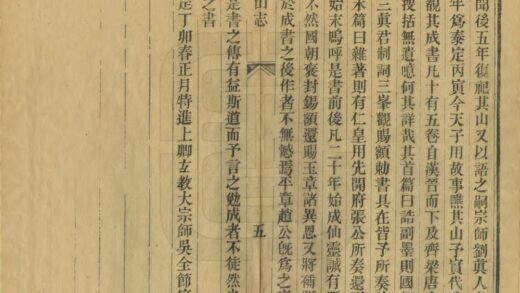 開後五年復祀其山又以語之嗣宗師劉真人
年爲泰定丙寅今天子用故事醮其山予實代
觀其成書凡十有五卷自漢晉而下及齊梁唐
授括無遺噫何其詳哉其首篇曰誥副墨則國
三眞君制詞三峯觀賜額勅書具在皆予所奏
末篇曰雜著則有仁皇用先開府張公所奏還
始末嗚呼是書前後凡二十年始成仙靈誠有
不然國朝褒封錫額還賜玉章諸異恩又將
於成書之後作者不無憾焉平章趙公旣爲之
山志
五
是書之傳有益斯道而予言之勉成者不徒然
之書
定丁卯春正月特進上卿玄教大宗師吳全節